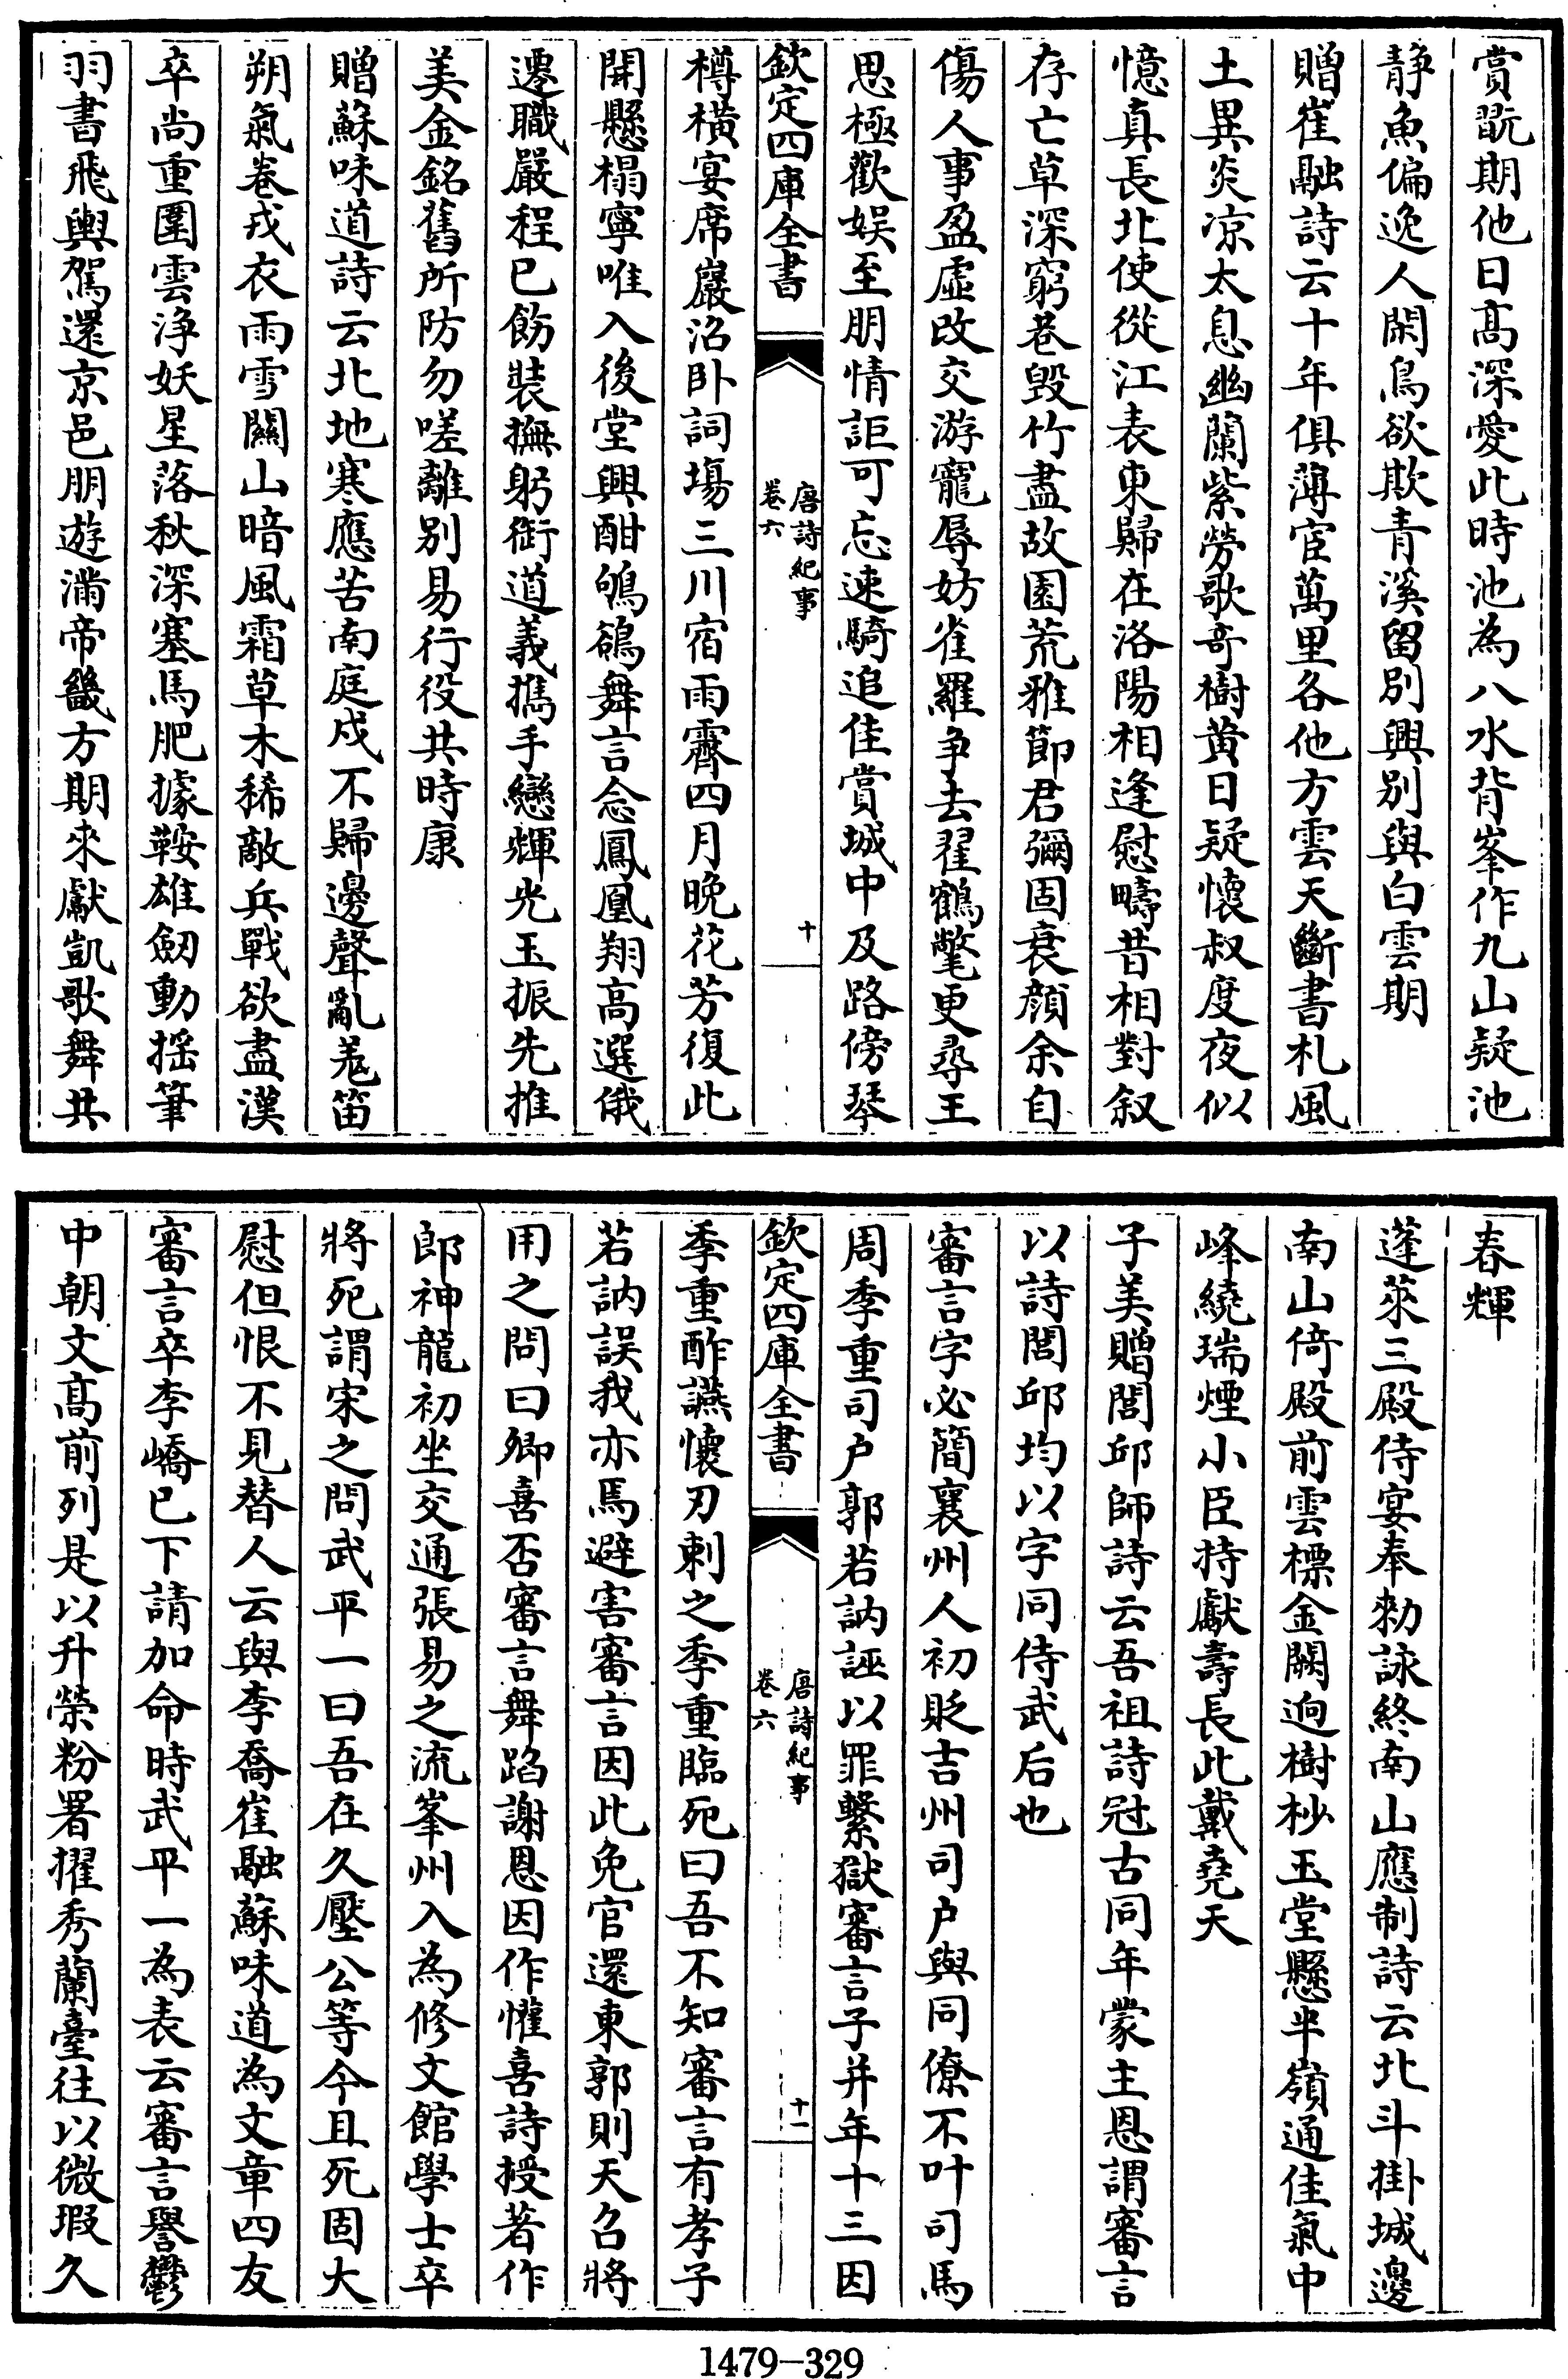 賞翫期他日高深愛此時池為八水背峯作九山疑池
靜魚偏逸人閑鳥欲欺青溪留別興別與白雲期
贈崔融詩云十年俱薄宦萬里各他方雲天斷書札風
土異炎凉太息幽蘭紫勞歌奇樹黄日疑懷叔度夜似
憶真長北使從江表東歸在洛陽相逢慰疇昔相對叙
存亡草深窮巷毀竹盡故園荒雅節君彌固衰顏余自
傷人事盈虛改交游寵辱妨雀羅爭去翟鶴氅更尋王
思極歡娛至朋情詎可忘速騎追佳賞城中及路傍琴
欽定四庫全書
唐詩紀事
卷六
十
樽横宴席巖沼卧詞場三川宿雨霽四月晚花芳復此
開懸榻寧唯入後堂興酣鴝鵒舞言念鳳凰翔高選俄
遷職嚴程已飭裝撫躬銜道義攜手戀輝光玉振先推
美金銘舊所防勿嗟離别易行役共時康
贈蘇味道詩云北地寒應苦南庭戍不歸邊聲亂羌笛
朔氣卷戎衣雨雪關山暗風霜草木稀敵兵戰欲盡漢
卒尚重圍雲淨妖星落秋深塞馬肥據鞍雄劒動摇筆
羽書飛輿駕還京邑朋遊滿帝畿方期來獻凱歌舞共
春輝
蓬萊三殿侍宴奉勅詠終南山應制詩云北斗掛城邊
南山倚殿前雲標金闕迥樹杪玉堂懸半嶺通佳氣中
峰繞瑞煙小臣持獻壽長此戴堯天
子美贈閭邱師詩云吾祖詩冠古同年蒙主恩謂審言
以詩閭邱均以字同侍武后也
審言字必簡襄州人初貶吉州司户與同僚不叶司馬
周季重司户郭若訥誣以罪繫獄審言子并年十三因
欽定四庫全書
唐詩紀事
卷六
十一
季重酢讌懷刃刺之季重臨死曰吾不知審言有孝子
若訥誤我亦焉避害審言因此免官還東郭則天召將
用之問曰卿喜否審言舞蹈謝恩因作懽喜詩授著作
郎神龍初坐交通張易之流峯州入為修文館學士卒
將死謂宋之問武平一曰吾在久壓公等今且死固大
慰但恨不見替人云與李嶠崔融蘇味道為文章四友
審言卒李嶠已下請加命時武平一為表云審言譽鬱
中朝文高前列是以升榮粉署擢秀蘭臺往以微瑕久
1479-329